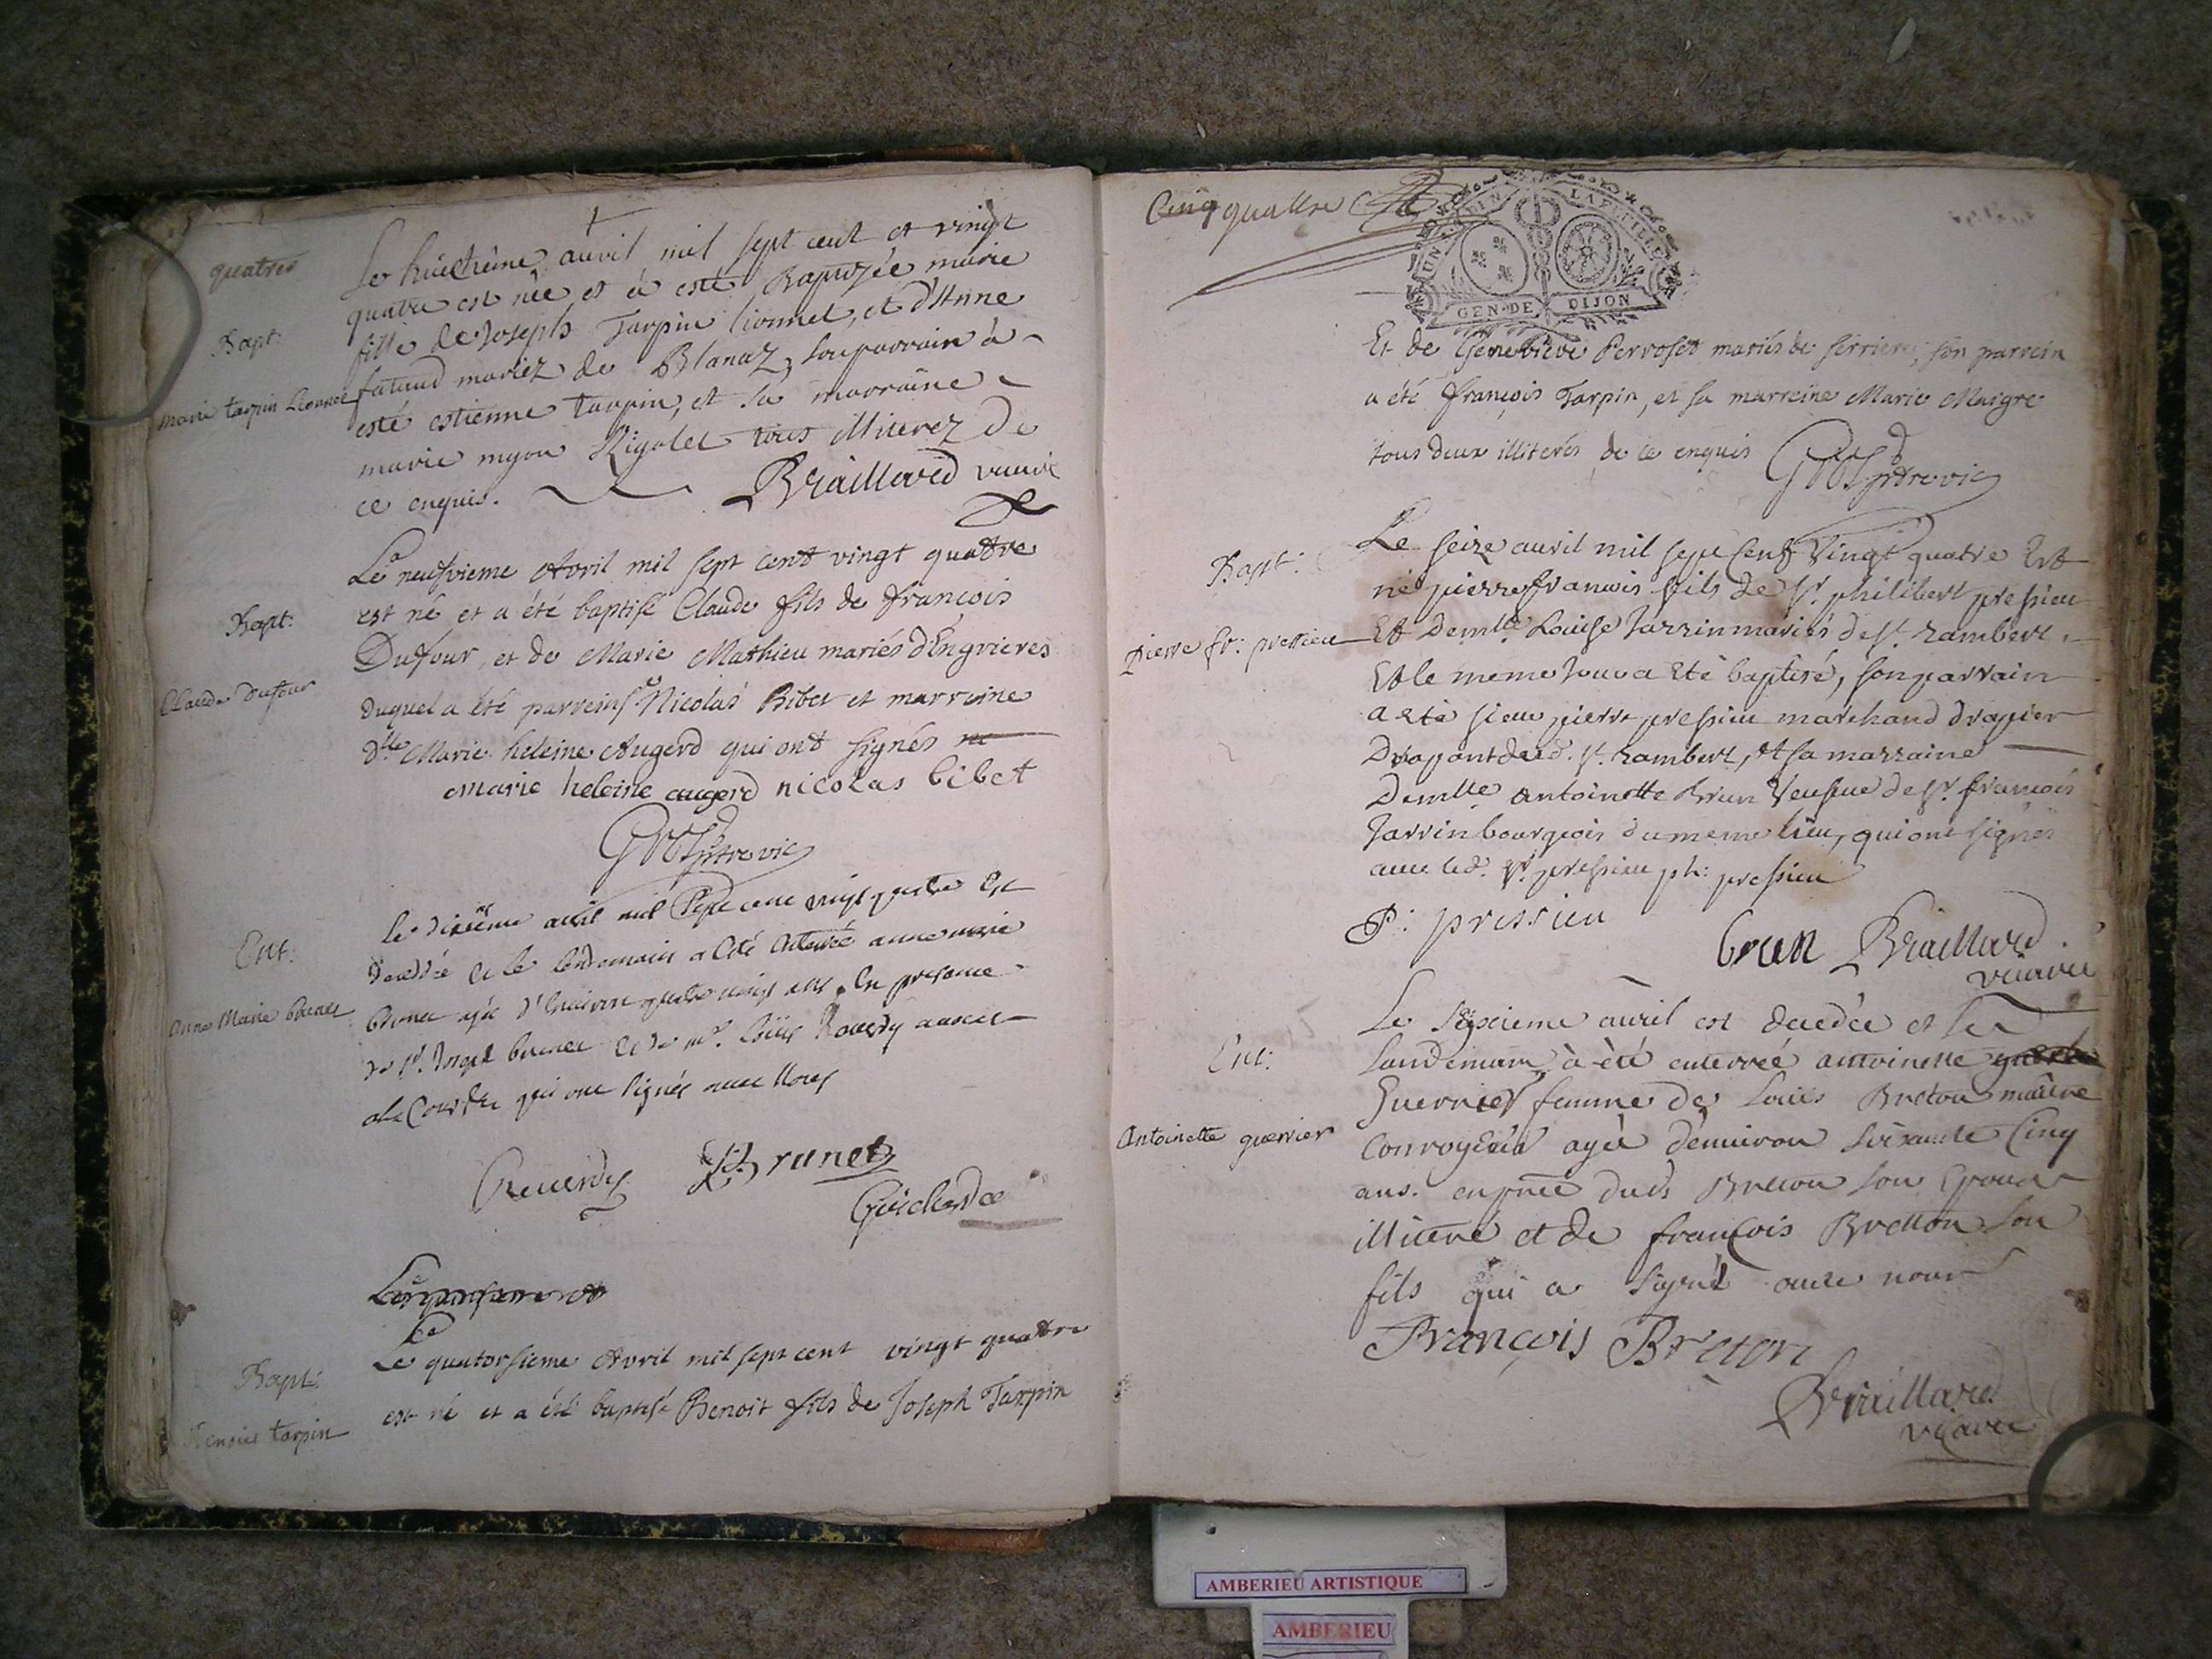 quatres
Le huictième avril mil sept cent et vingt
quatre est née et à esté Baptizée marie
fille de Joseph Tarpin lionnet, et d'Anne
futaud mariez de Blanaz, son parrain à
esté estienne tarpin, et sa marraine
marie myon Rigolet tous illiterez de
ce enquis. Braillard vicaire
Bapt:
marie tarpin Lionnet
Le neufvieme Avril mil sept cent vingt quattre
est né et a été baptisé Claude fils de francois
Dufour, et de Marie Mathieu mariés d'Engrieres
duquel a été parrein sr Nicolas Bibet et marreine
dlle Marie heleine Augerd qui ont signés
marie heleine augerd nicolas bibet
Bapt:
Claude Dufour
le dixième avril mil sept cent vingt quatre est
decedée et le lendemain a été enterrée anne marie
brunet agée d'environ quatre vingt ans, en presence
de sr Joseph brunet et de mr Louis Reverdy
qui ont signés avec nous
Reverdy Brunet
Guichard
Ent:
Anne Marie brunet
Le quatorsieme Avril mil sept cent vingt quattre
est né et a été baptisé Benoit fils de Joseph Tarpin
Bapt:
Benoit tarpin
Cinq quattre
GEN·DE DIJON
Et de Genevieve Perroset mariés de serriere, son parrein
a été françois Tarpin, et sa marreine Marie Maigre
tous deux illiterés de ce enquis
Le seize avril mil sept cent vingt quatre Est
né pierre francois fils de sr philibert pressieu
Et Demlle Louise Jarrin mariés de st. rambert,
Et le meme Jour a Eté baptisé, son parrain
a eté sieur pierre pressieu marchand drapier
Drapant dud. st. rambert, et sa marraine
Demlle antoinette brun Veufue de sr francois
Jarrin bourgeois du meme lieu, qui ont signés
avec led. sr pressieu ph: pressieu
P: pressieu
brun Braillard
vicaire
Bapt:
pierre fr: pressieu
Le seizieme avril est decedée et le
landemain à été enterrée antoinette
Guerrier femme de Louis Breton maitre
Convoyeur agée d'environ soixante Cinq
ans. en pnce dud. Breton son Epoux
illiteré et de françois Bretton son
fils qui a signé avec nous
François Breton
Braillard
vicaire
Ent:
Antoinette guerrier
AMBERIEU ARTISTIQUE
AMBERIEU